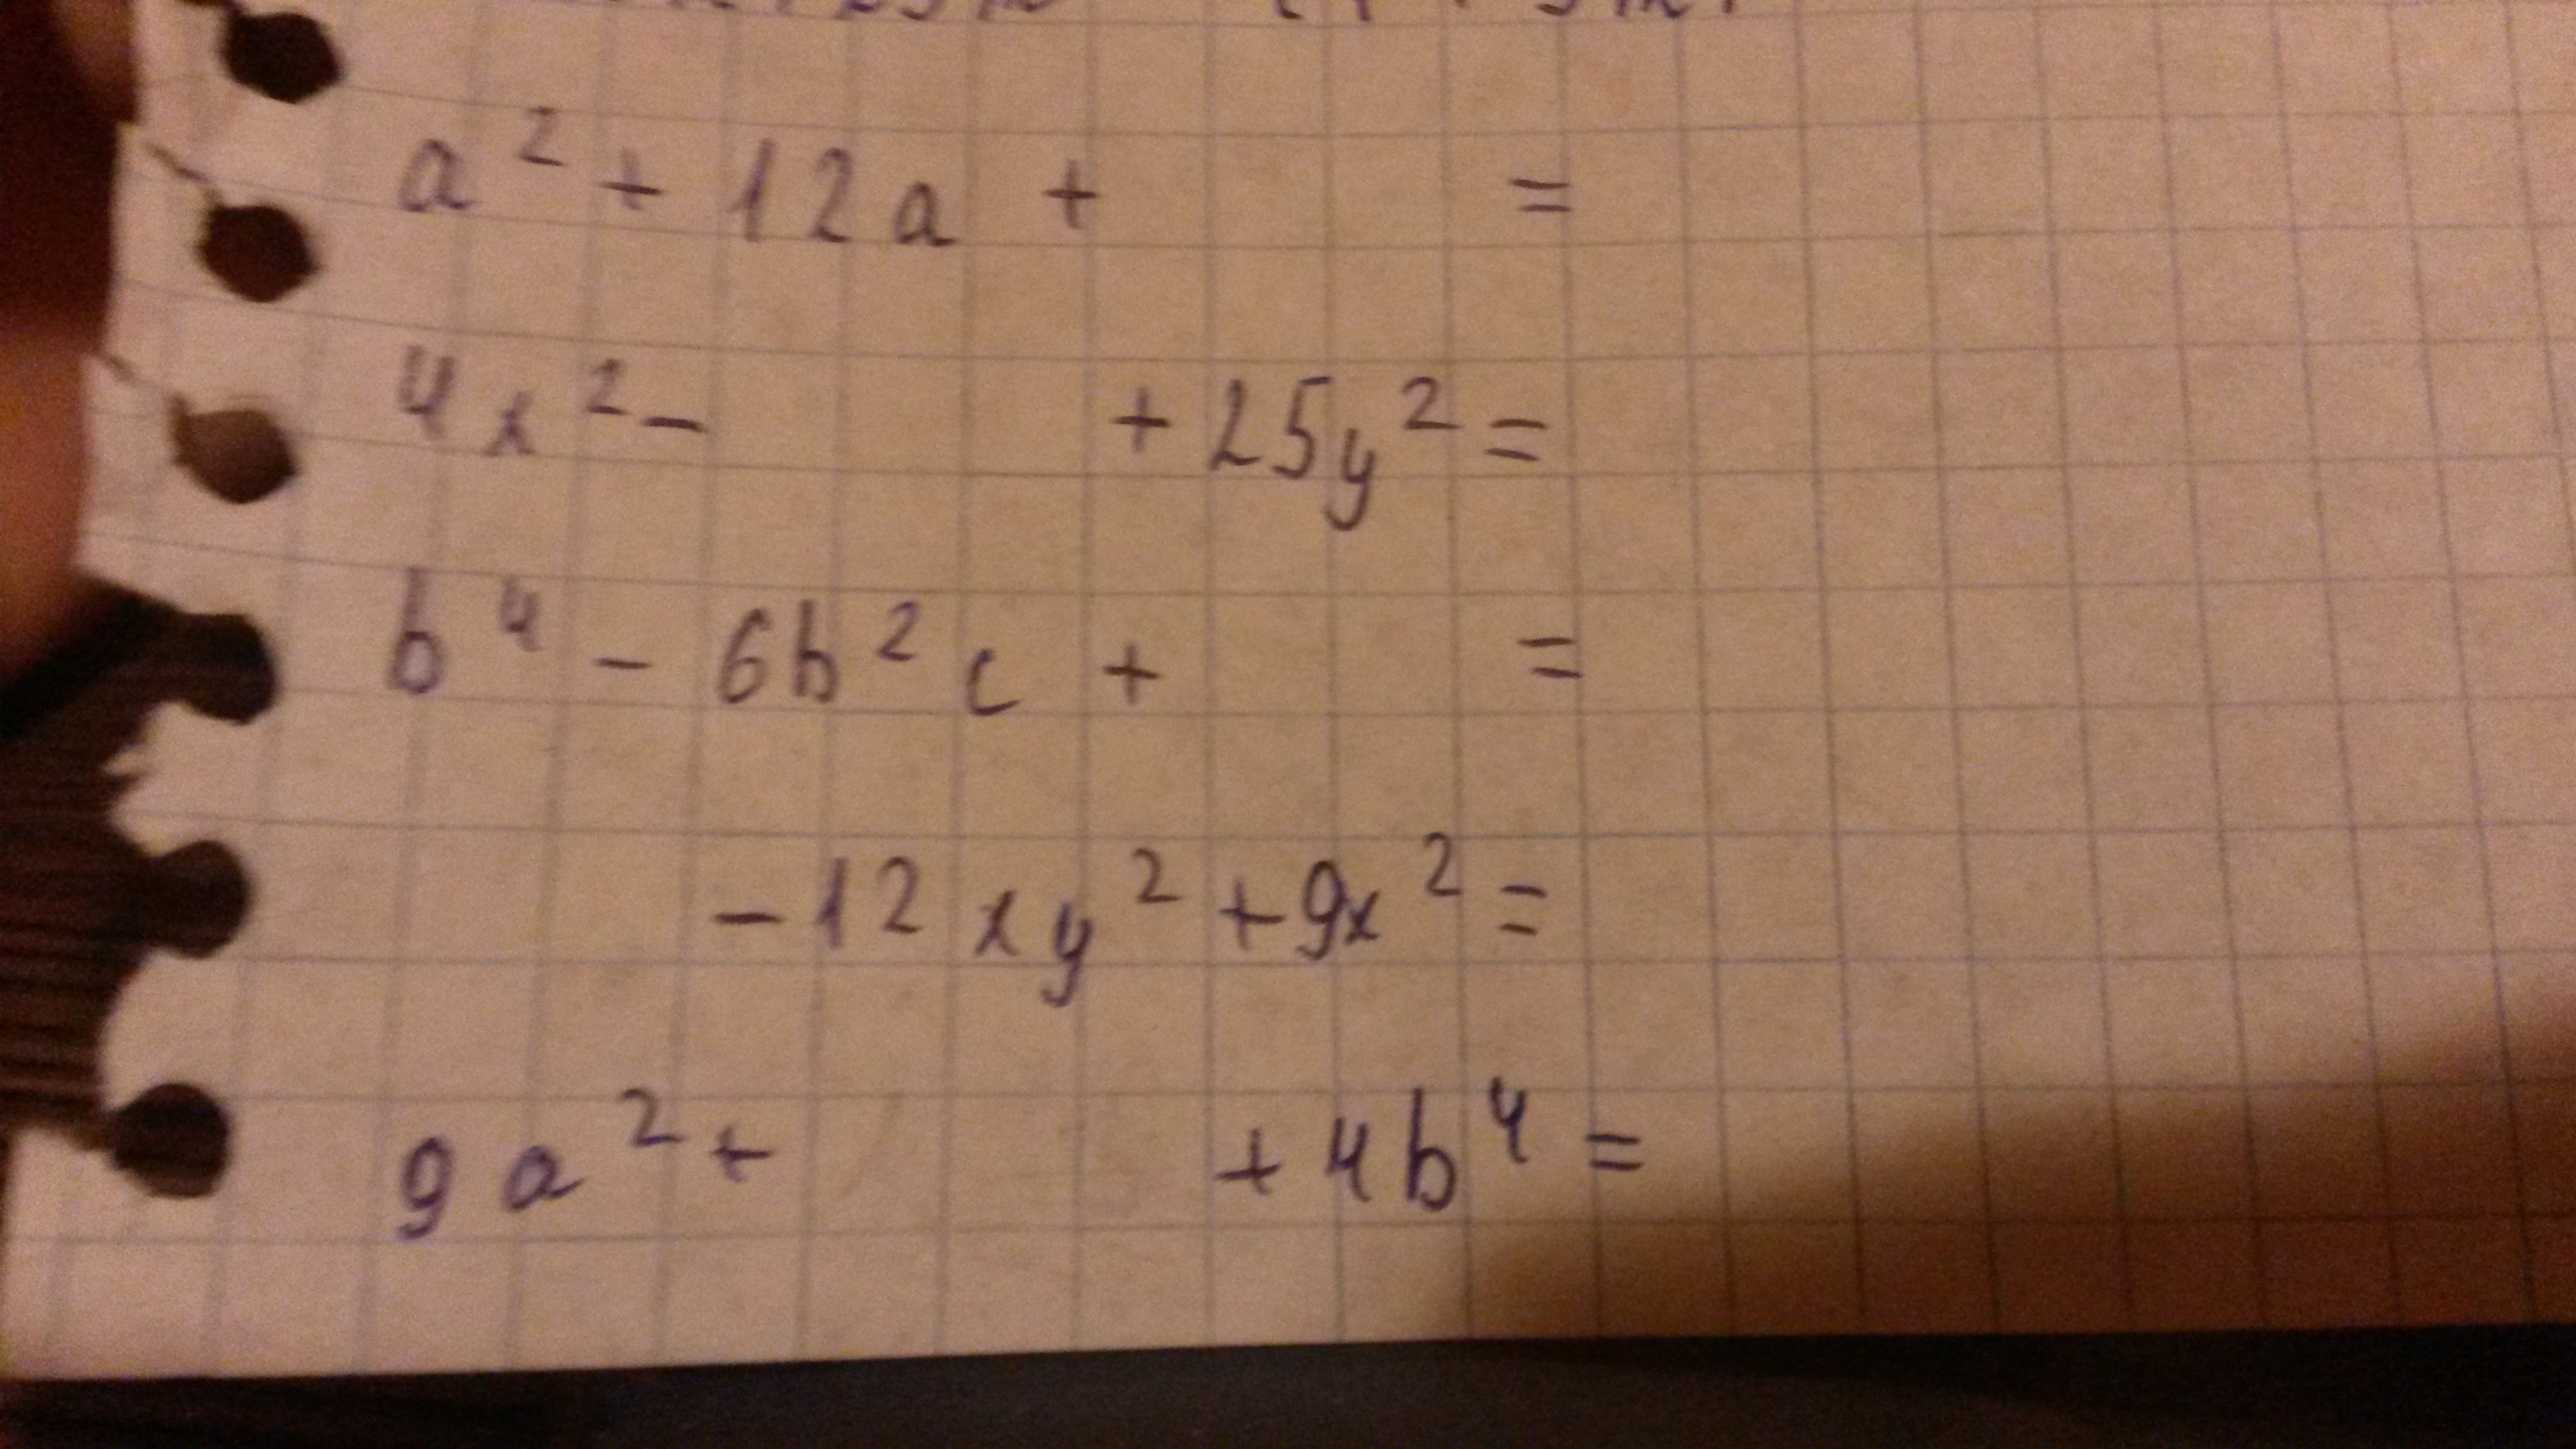 a² + 12a + =
4x² - + 25y² =
b⁴ - 6b²c + =
- 12xy² + 9x² =
9a² + + 4b⁴ =